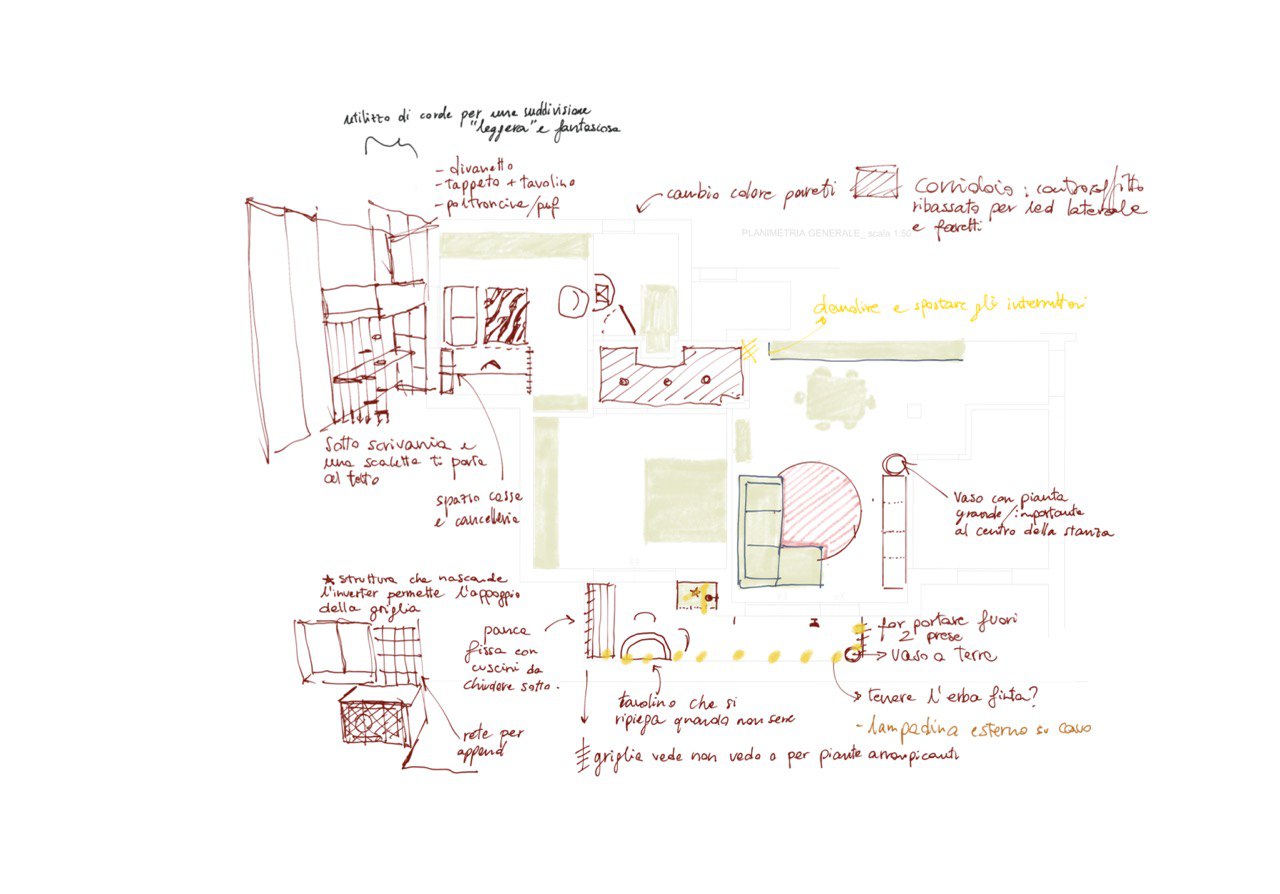 utilizzo di corde per una suddivisione
"leggera" e fantasiosa
- divanetto
- tappeto + tavolino
- poltroncine/puf
cambio colore pareti
corridoio: controsoffitto
ribassato per led laterale
e faretti
PLANIMETRIA GENERALE_ scala 1:50
demolire e spostare gli interruttori
sotto scrivania e
una scaletta ti porta
al letto
spazio casse
e cancelleria
vaso con pianta
grande/importante
al centro della stanza
★ struttura che nasconde
l'inverter permette l'appoggio
della griglia
panca
fissa con
cuscini da
chiudere sotto.
far portare fuori
2 prese
vaso a terra
tavolino che si
ripiega quando non serve
tenere l'erba finta?
- lampadina esterno su cavo
rete per
append
griglia vede non vedo o per piante arrampicanti